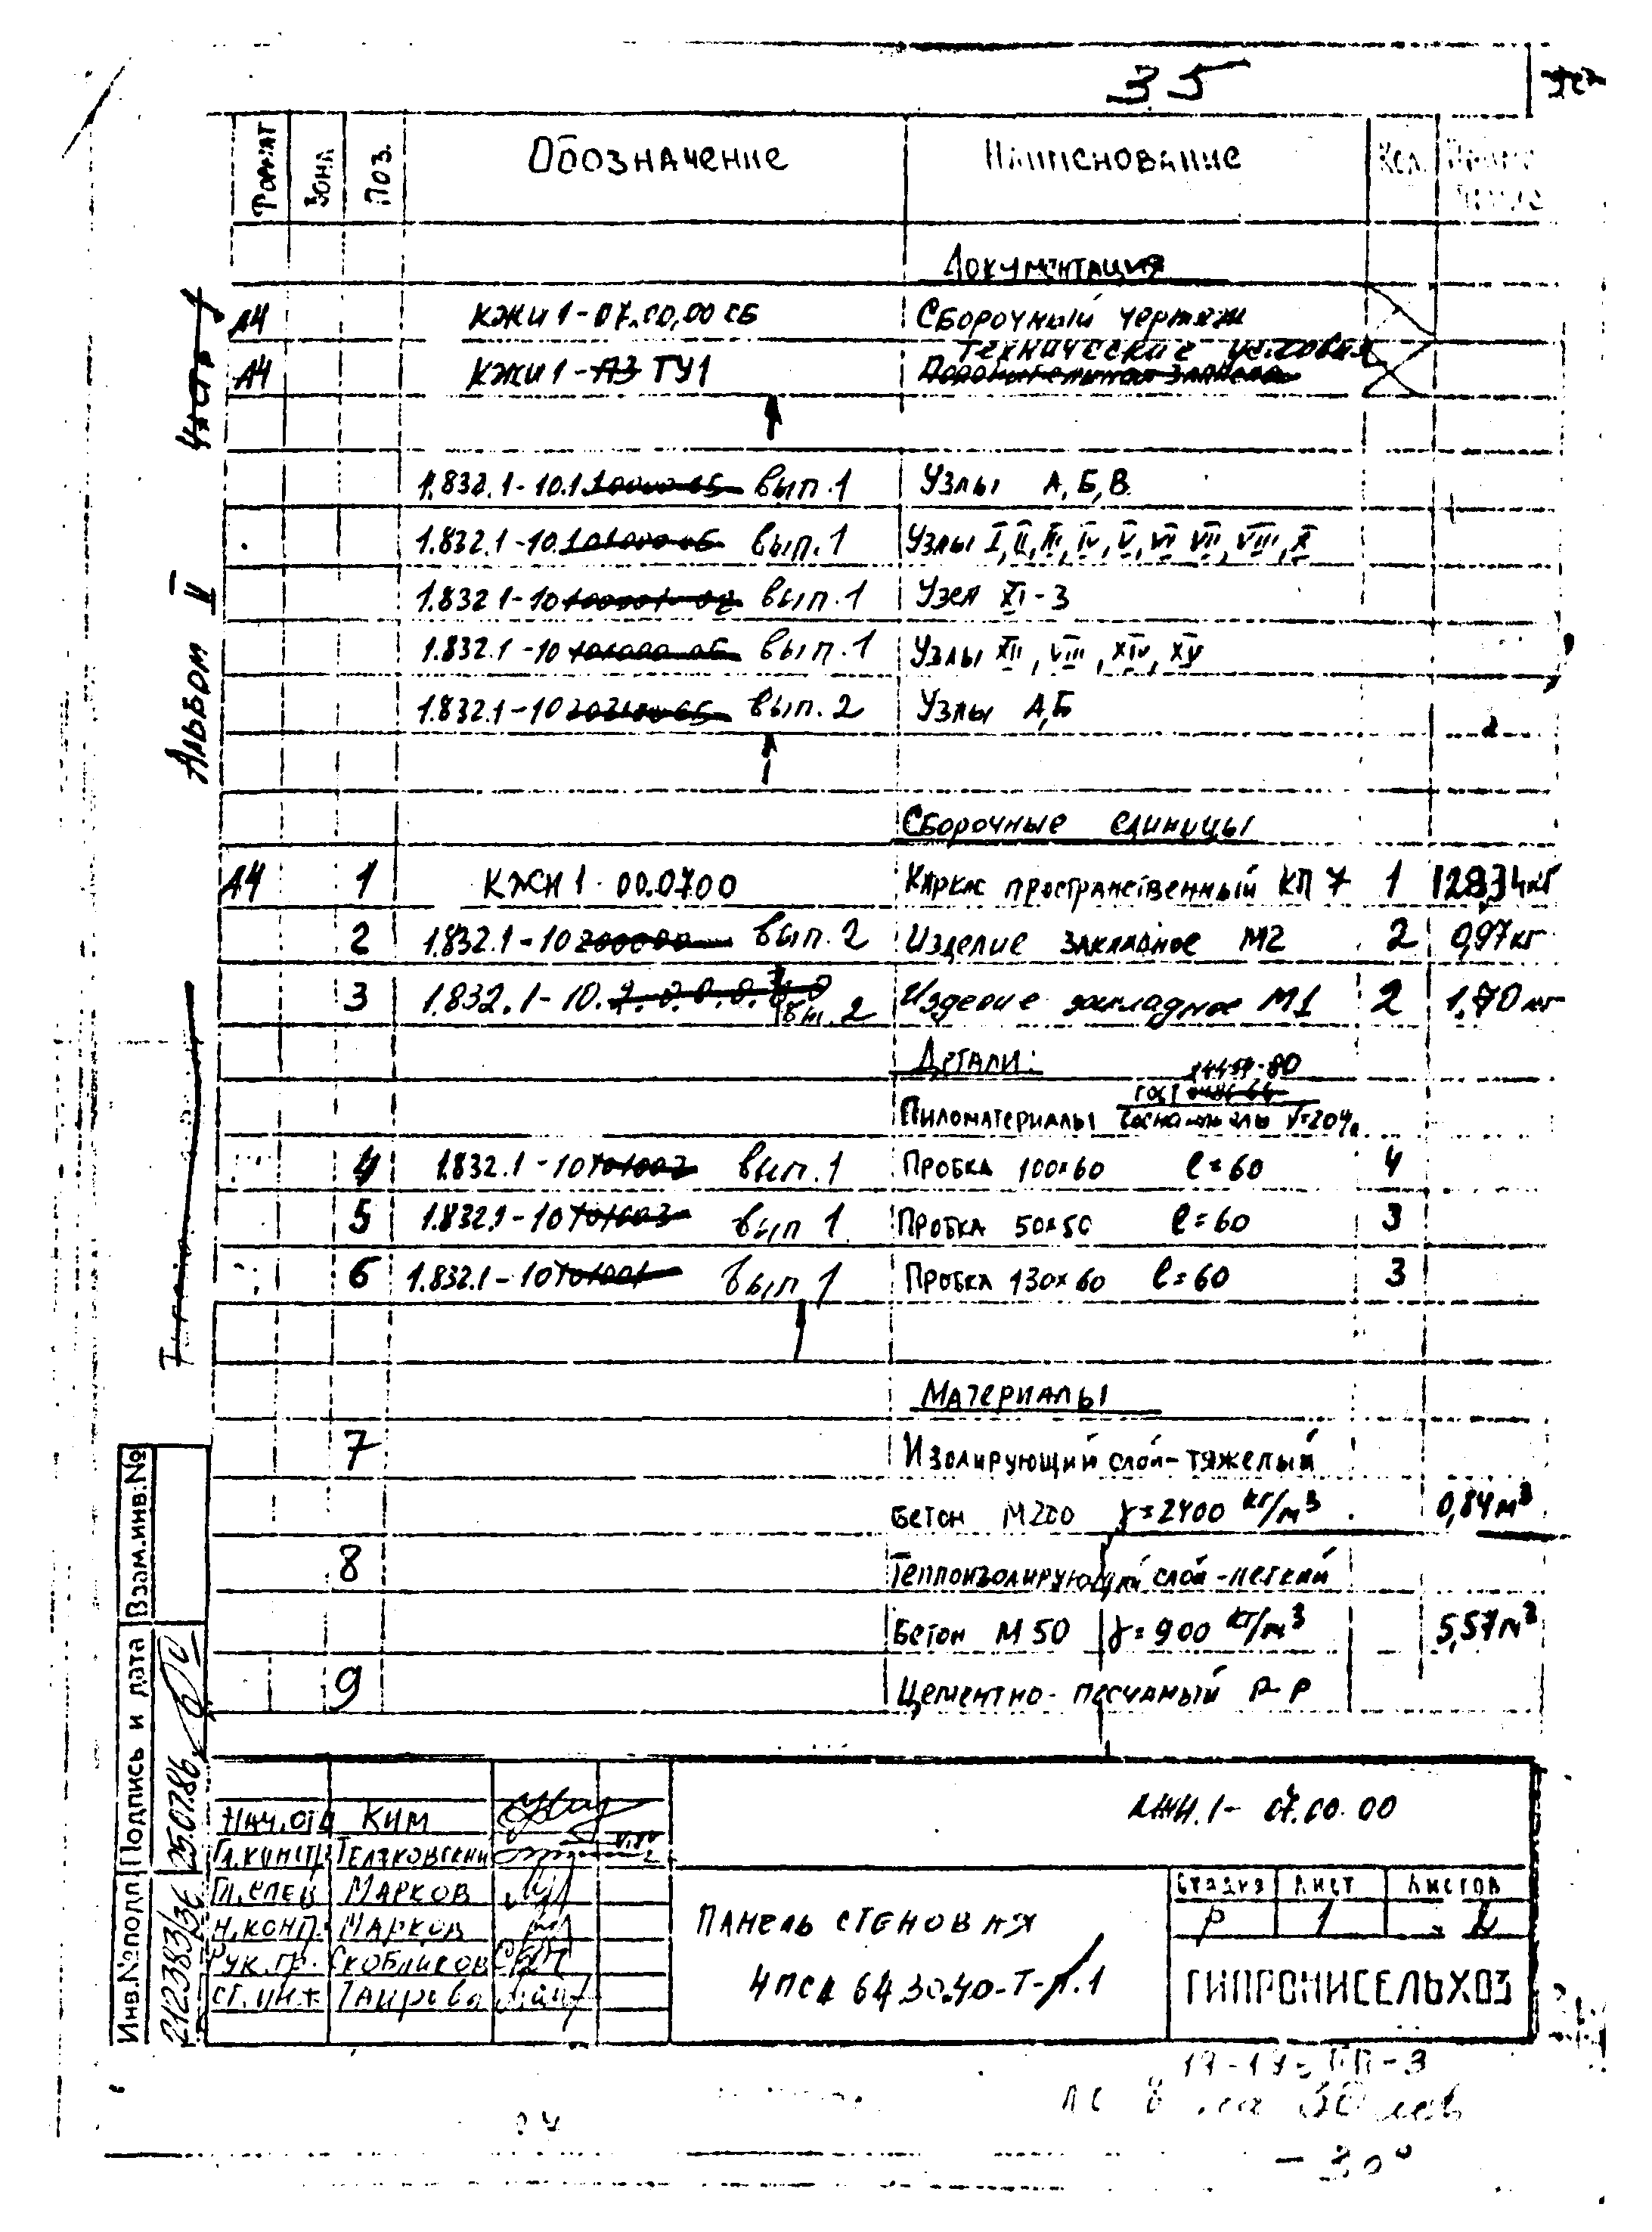 35
Формат Зона Поз. Обозначение Наименование Кол.
Документация
А4 КЖИ1-07.00.00 СБ Сборочный чертеж
Технические условия
А4 КЖИ1-ТУ1
1.832.1-10.1 вып.1 Узлы А,Б,В
1.832.1-10 вып.1 Узлы I, II, III, IV, V, VI VII, VIII, X
1.832 1-10 вып.1 Узел XI-3
1.832.1-10 вып.1 Узлы XII, VIII, XIV, XV
1.832.1-10 вып.2 Узлы А,Б
Сборочные единицы
А4 1 КЖИ1-00.0700 Каркас пространственный КП 7 1 128,34кг
2 1.832.1-10 вып.2 Изделие закладное М2 2 0,97кг
3 1.832.1-10. вып. 2 Изделие закладное М1 2 1,70кг
Детали:
ГОСТ
Пиломатериалы
4 1.832.1-10 вып.1 Пробка 100×60 ℓ=60 4
5 1.832.1-10 вып 1 Пробка 50×50 ℓ=60 3
6 1.832.1-10 вып 1 Пробка 130×60 ℓ=60 3
Материалы
7 Изолирующий слой-тяжелый
Бетон М200 γ=2400 кг/м3 0,84м3
8 Теплоизолирующий слой-легкий
Бетон М50 γ=900 кг/м3 5,57м3
9 Цементно-песчаный р-р
Альбом II
Взам.инв.№
Подпись и дата 25.07.86
Инв.№подл 212383/36
КЖИ.1-07.00.00
Нач.отд Ким
Гл.констр. Теляковский
Гл.спец Марков
Н.конт. Марков
Рук.гр. Скобликов
Ст.инж Таирова
Панель стеновая
4ПСЛ 64.30.40-Т-Л.1
Стадия Лист Листов
Р 1
ГИПРОНИСЕЛЬХОЗ
-30°